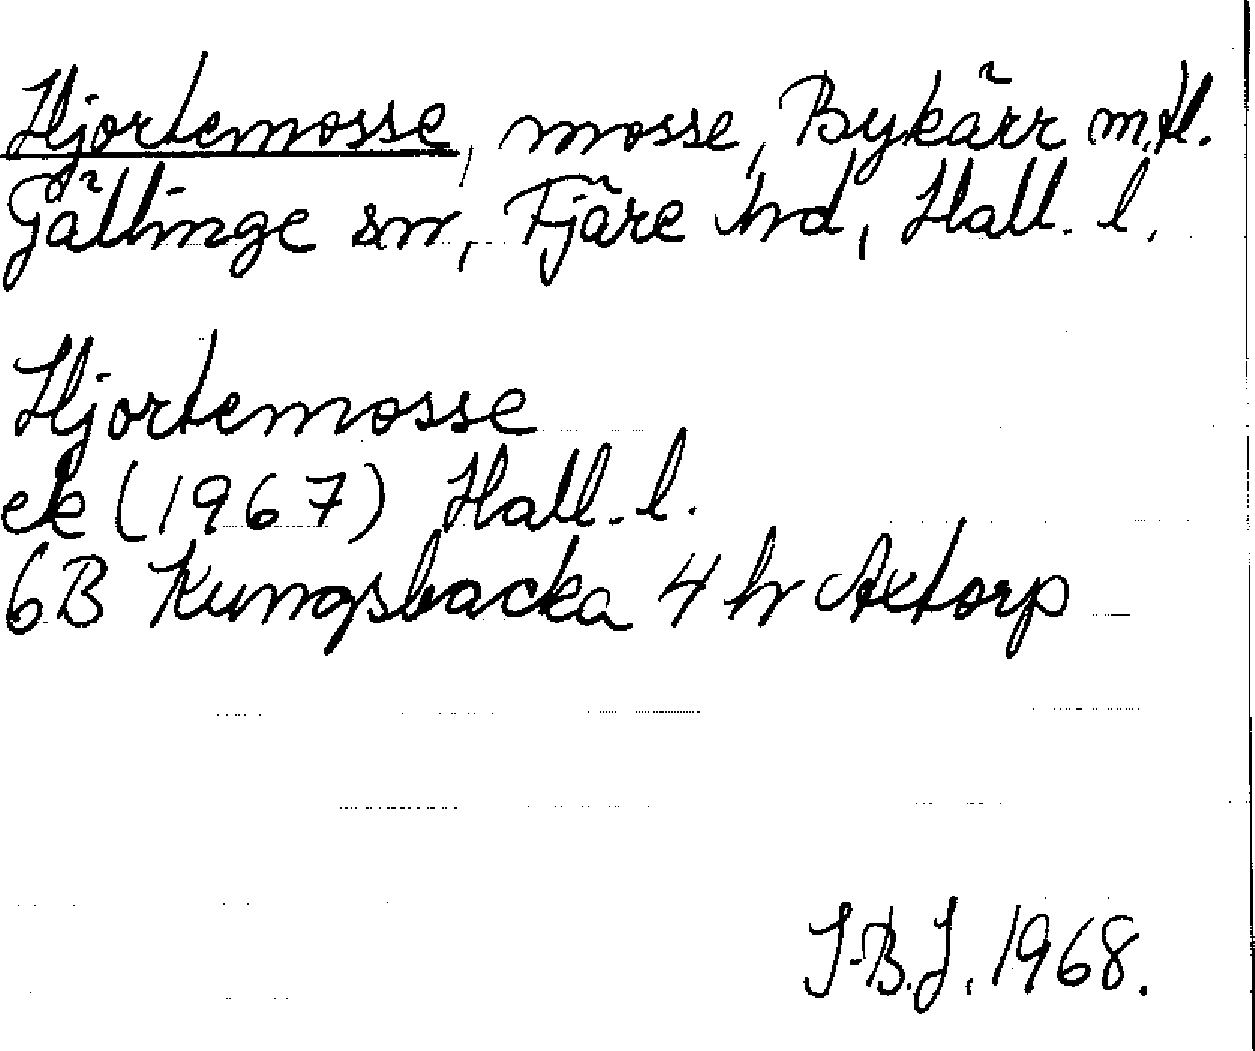 Hjortemosse, mosse, Bykärr m.fl.
Gällinge sn, Fjäre hd, Hall. l.
Hjortemosse
ek (1967) Hall. l.
6B Kungsbacka 4 h Axtorp
I-B.J. 1968.